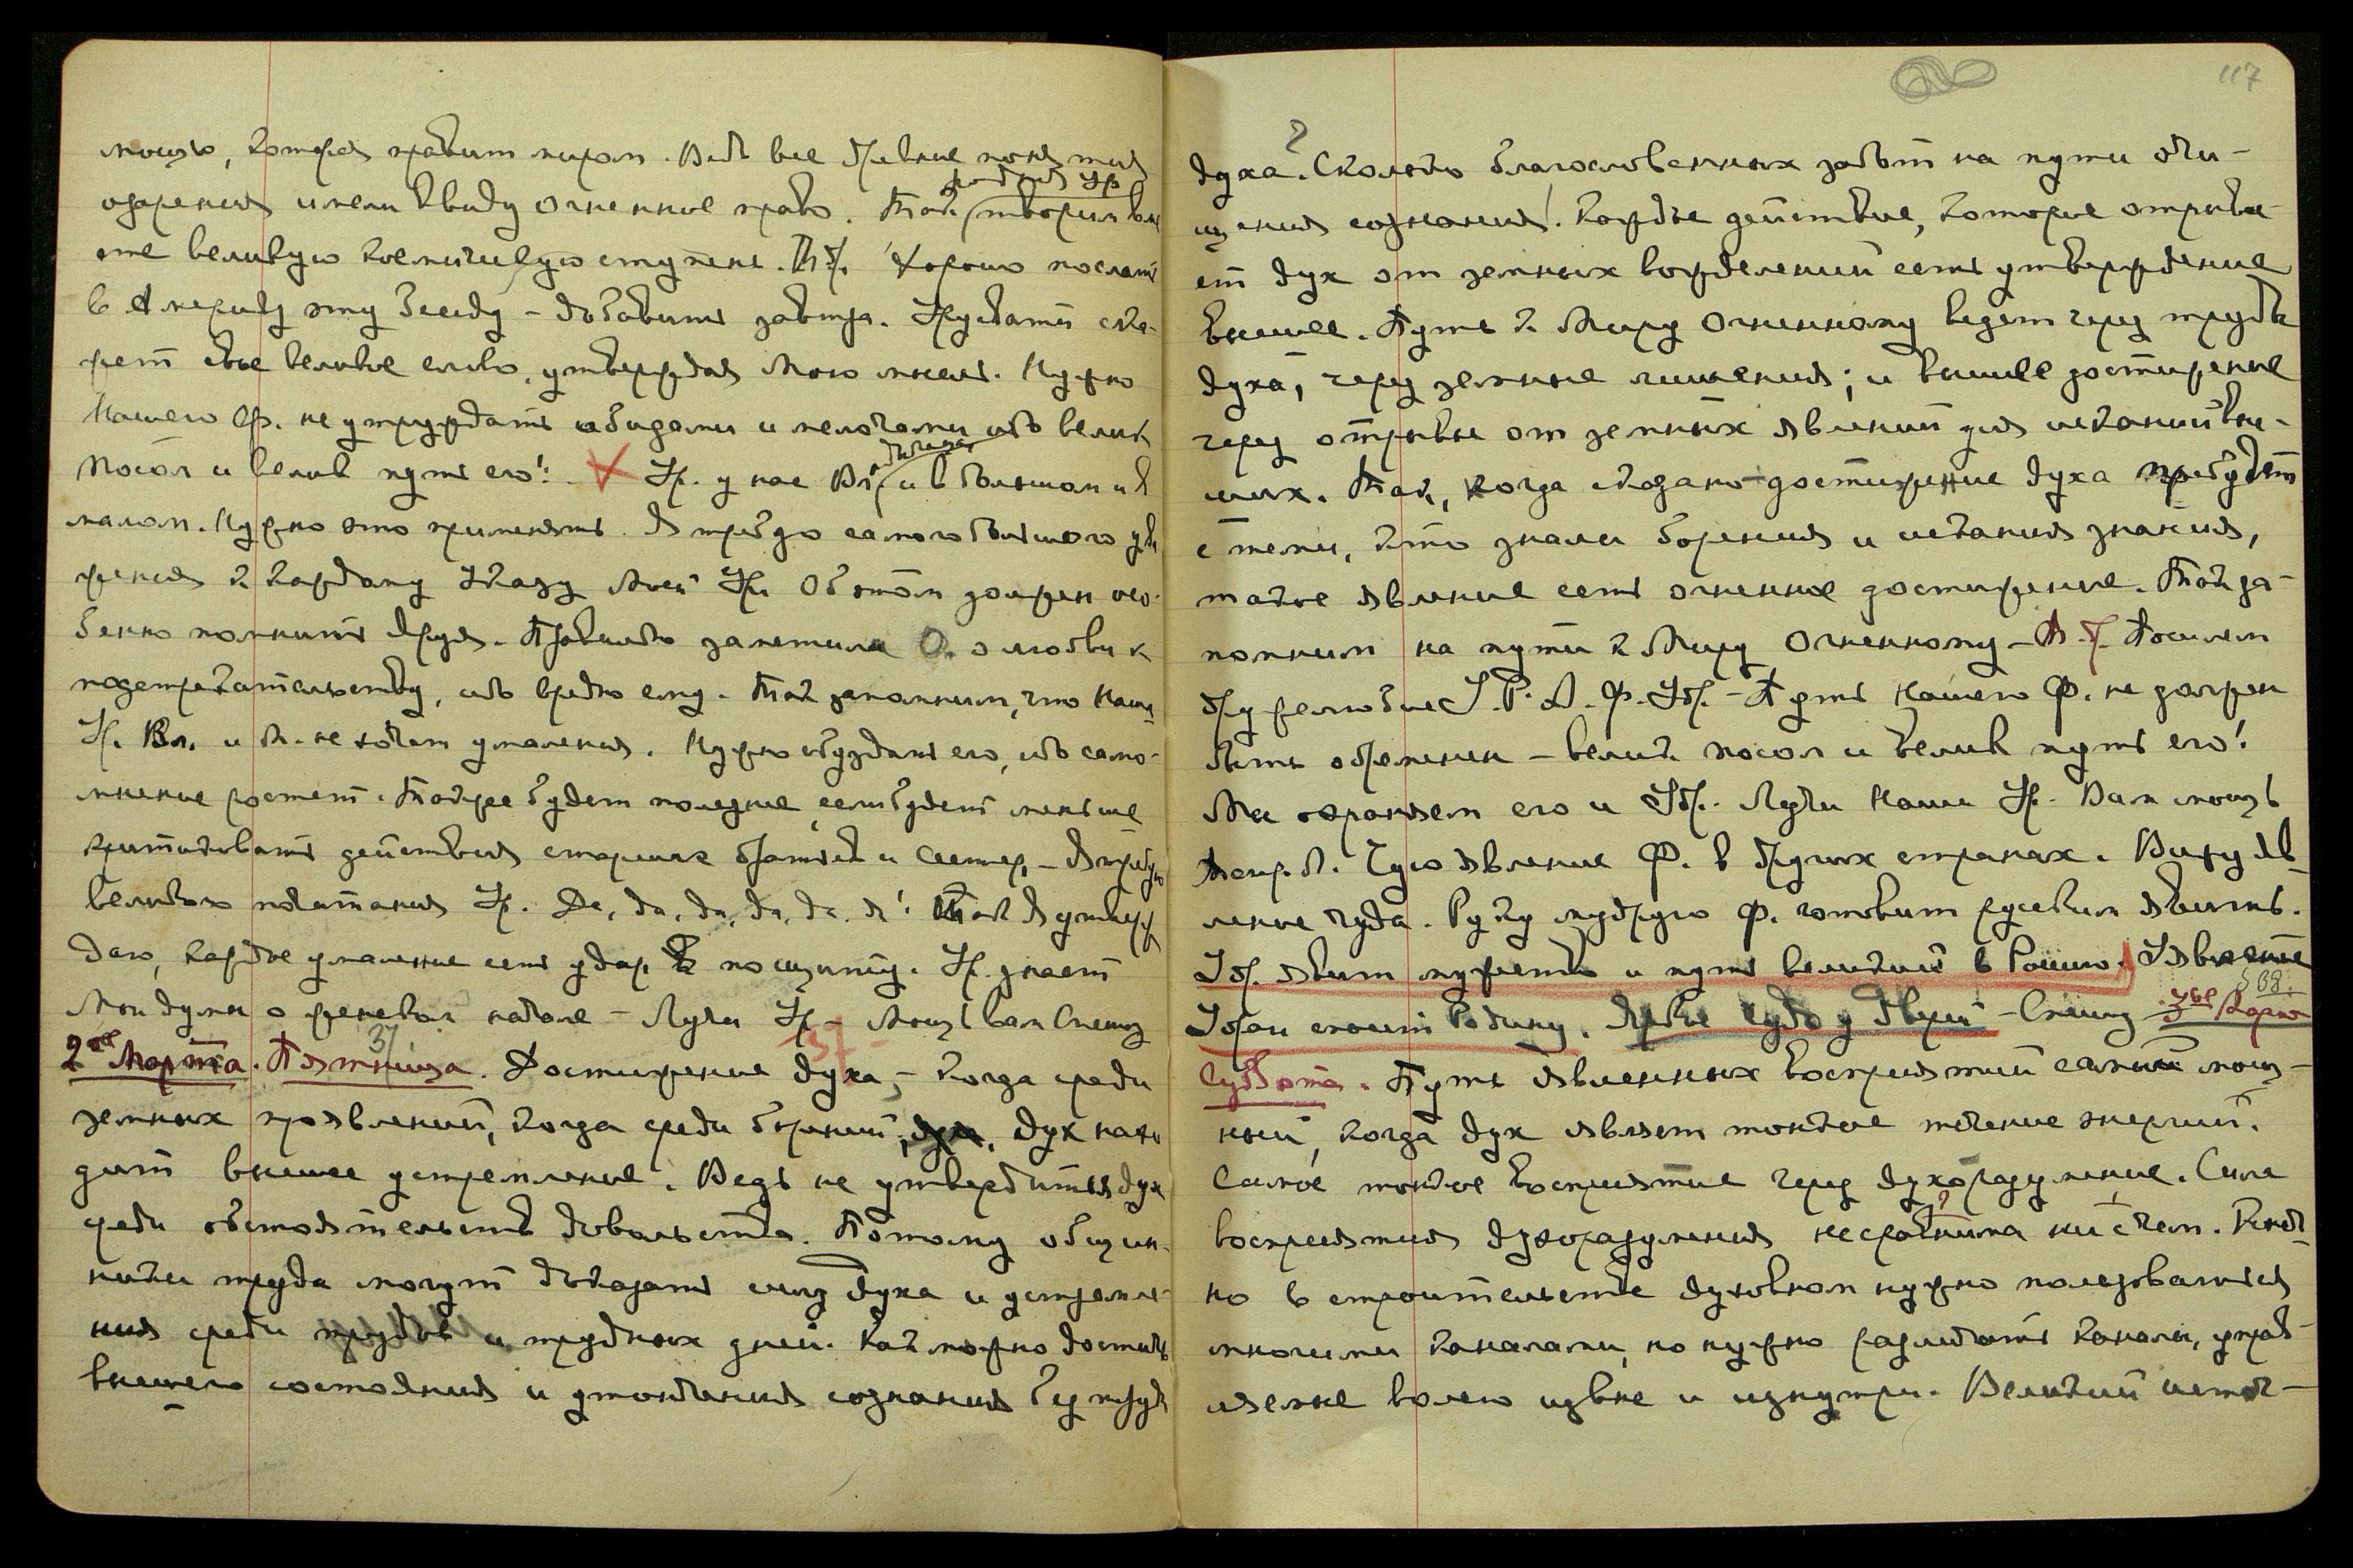 мощью, которая правит миром. Ведь все древние понятия
озарения имели ввиду огненное право. Так творим вы
сше великую космическую ступень. Хорошо послать
в Америку эту беседу – добавить завтра. Ур. ска-
жет свое великое слово, утверждая мою мысль. Нужно
Нашего Ф. не утруждать обидами и мелочами ибо велик
посол и велик путь его!. Ур. у нас Вл. и в большом и в
малом. Нужно это применять. Я требую самого большого ува
жения к каждому Указу Моей Ур. Об этом должен осо-
бенно помнить Яруя. Правильно заметила О. о любви к
подстрекательству, ибо вредно ему. Так запомним, что Наша
Ур. Вл. и М. не хочет умаления. Нужно обуздать его, ибо само-
мнение растет. Также будет полезнее если будет меньше
критиковать действия старших братьев и сестер, – Я требую
великого почитания Ур. Да, да, да, да, да, да! Так Я утверж
даю, каждое умаление есть удар по щиту. Ур. знает
Мои думы о женском начале – Лучи Ур – Мощь вам Спешу
2ое Марта. Пятница. Достижение духа, – когда среди
37
земных проявлений, когда среди борений, дух нахо
дит высшее устремление. Ведь не утвердиться дух
среди обстоятельств довольства. Потому общин-
ники труда могут доказать мощь духа и устремле-
ния среди трудов и трудных дней. Как можно достичь
высшего состояния и утончения сознания без труда
117
духа? Сколько благословенных забот на пути очи-
щения сознания! Каждое действие, которое отрыва-
ет дух от земных вожделений есть утверждение
высшее. Путь к Миру Огненному ведет через труды
духа, через земные лишения; и высшее достижение
через отрывы от земных явлений для исканий выс-
ших. Так, когда сказано – достижение духа пребудет
с теми, кто знали борения и искания знания,
такое явление есть огненное достижение. Так за-
помним на пути к Миру Огненному – Посылаем
дружелюбие Путь Нашего Ф. не должен
быть обременен – велик посол и велик путь его!
Мы охраняем его и Уд. Лучи Наши Ур. Вам мощь
Чую явление Ф. в других странах. Вижу яв-
ление чуда. Руку мудрую Ф. готовит русским явить.
Уд. явит мужество и путь великий в Россию. Явление
Удраи спасет Родину. Яркое чудо у дверей – Спешу 3ье Марта
38.
Суббота. Путь явленных восприятий самый мощ-
ный, когда дух являет тонкое течение энергий.
Самое тонкое восприятие через духоразумение. Сила
восприятия духоразумения несравнима ни с чем. Конеч-
но в строительстве духовном нужно пользоваться
многими каналами, но нужно различать каналы, управ-
ляемые волею извне и изнутри. Великий источ-